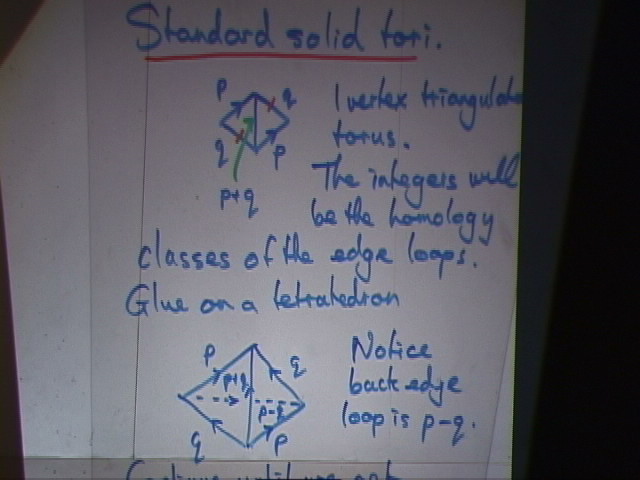 Standard solid tori.
p q
1 vertex triangulated
torus.
q p
p+q
The integers will
be the homology
classes of the edge loops.
Glue on a tetrahedron
p q
p+q
p-q
q p
Notice
back edge
loop is p-q.